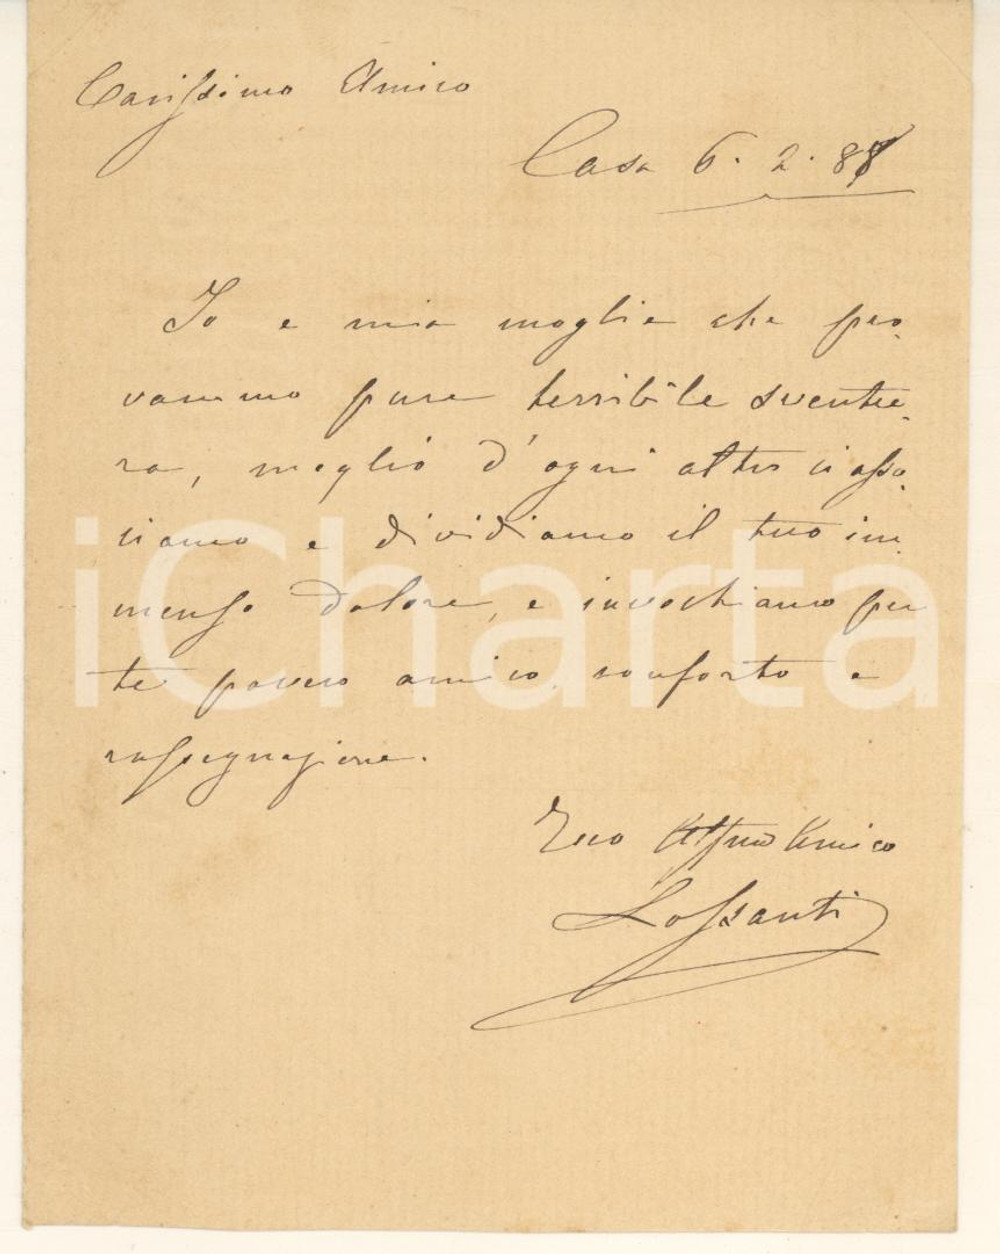 Carissimo Amico
Casa 6. 2. 88
Io e mia moglie che pro-
vammo pure terribile sventu-
ra, meglio d'ogni altro ci asso-
ciamo e dividiamo il tuo im-
menso dolore, e invochiamo per
te povero amico conforto e
rassegnazione.
Tuo Affmo Amico
Lossanti
iCharta